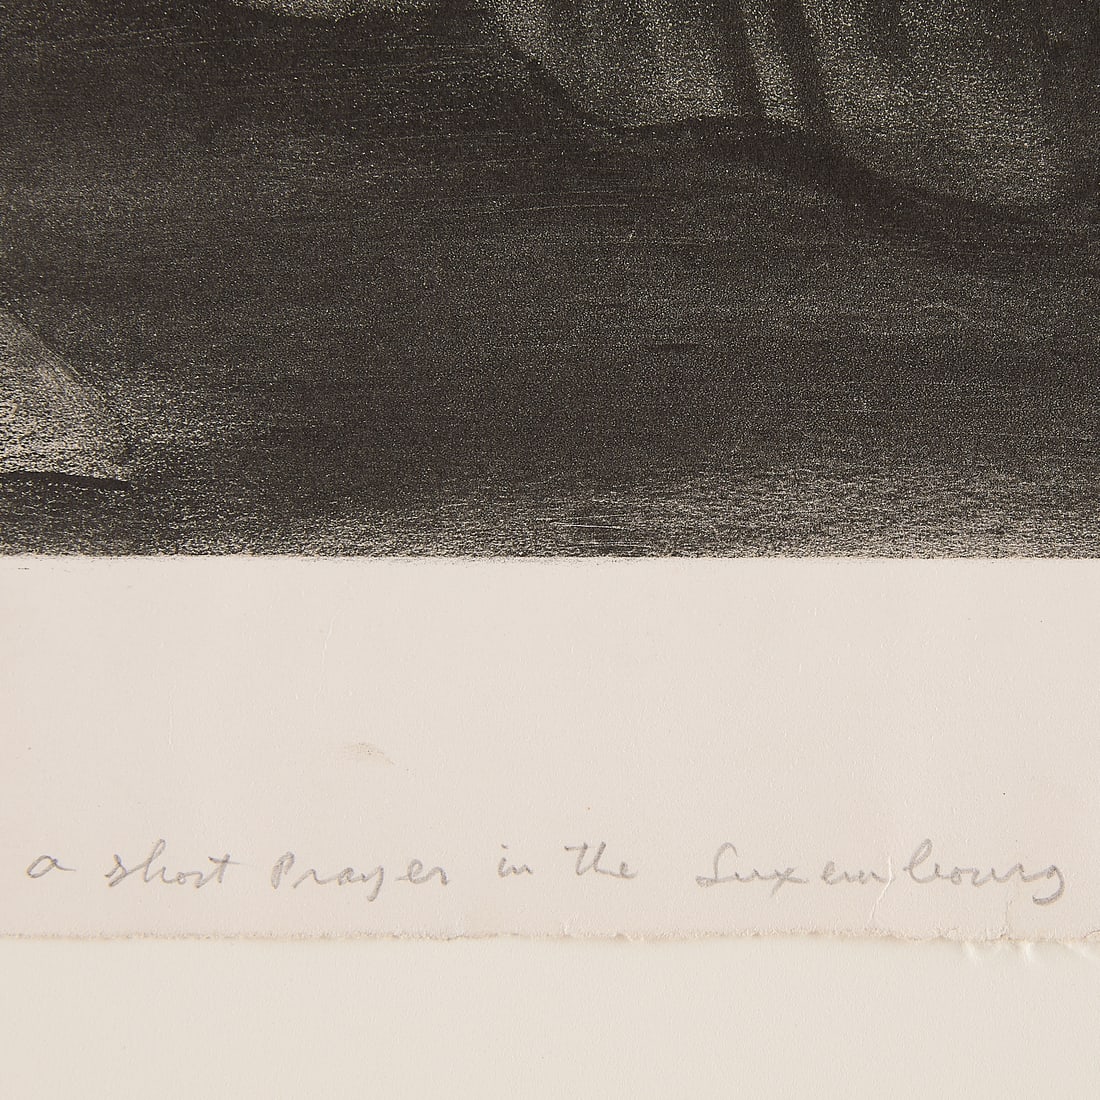 a short Prayer in the Luxembourg